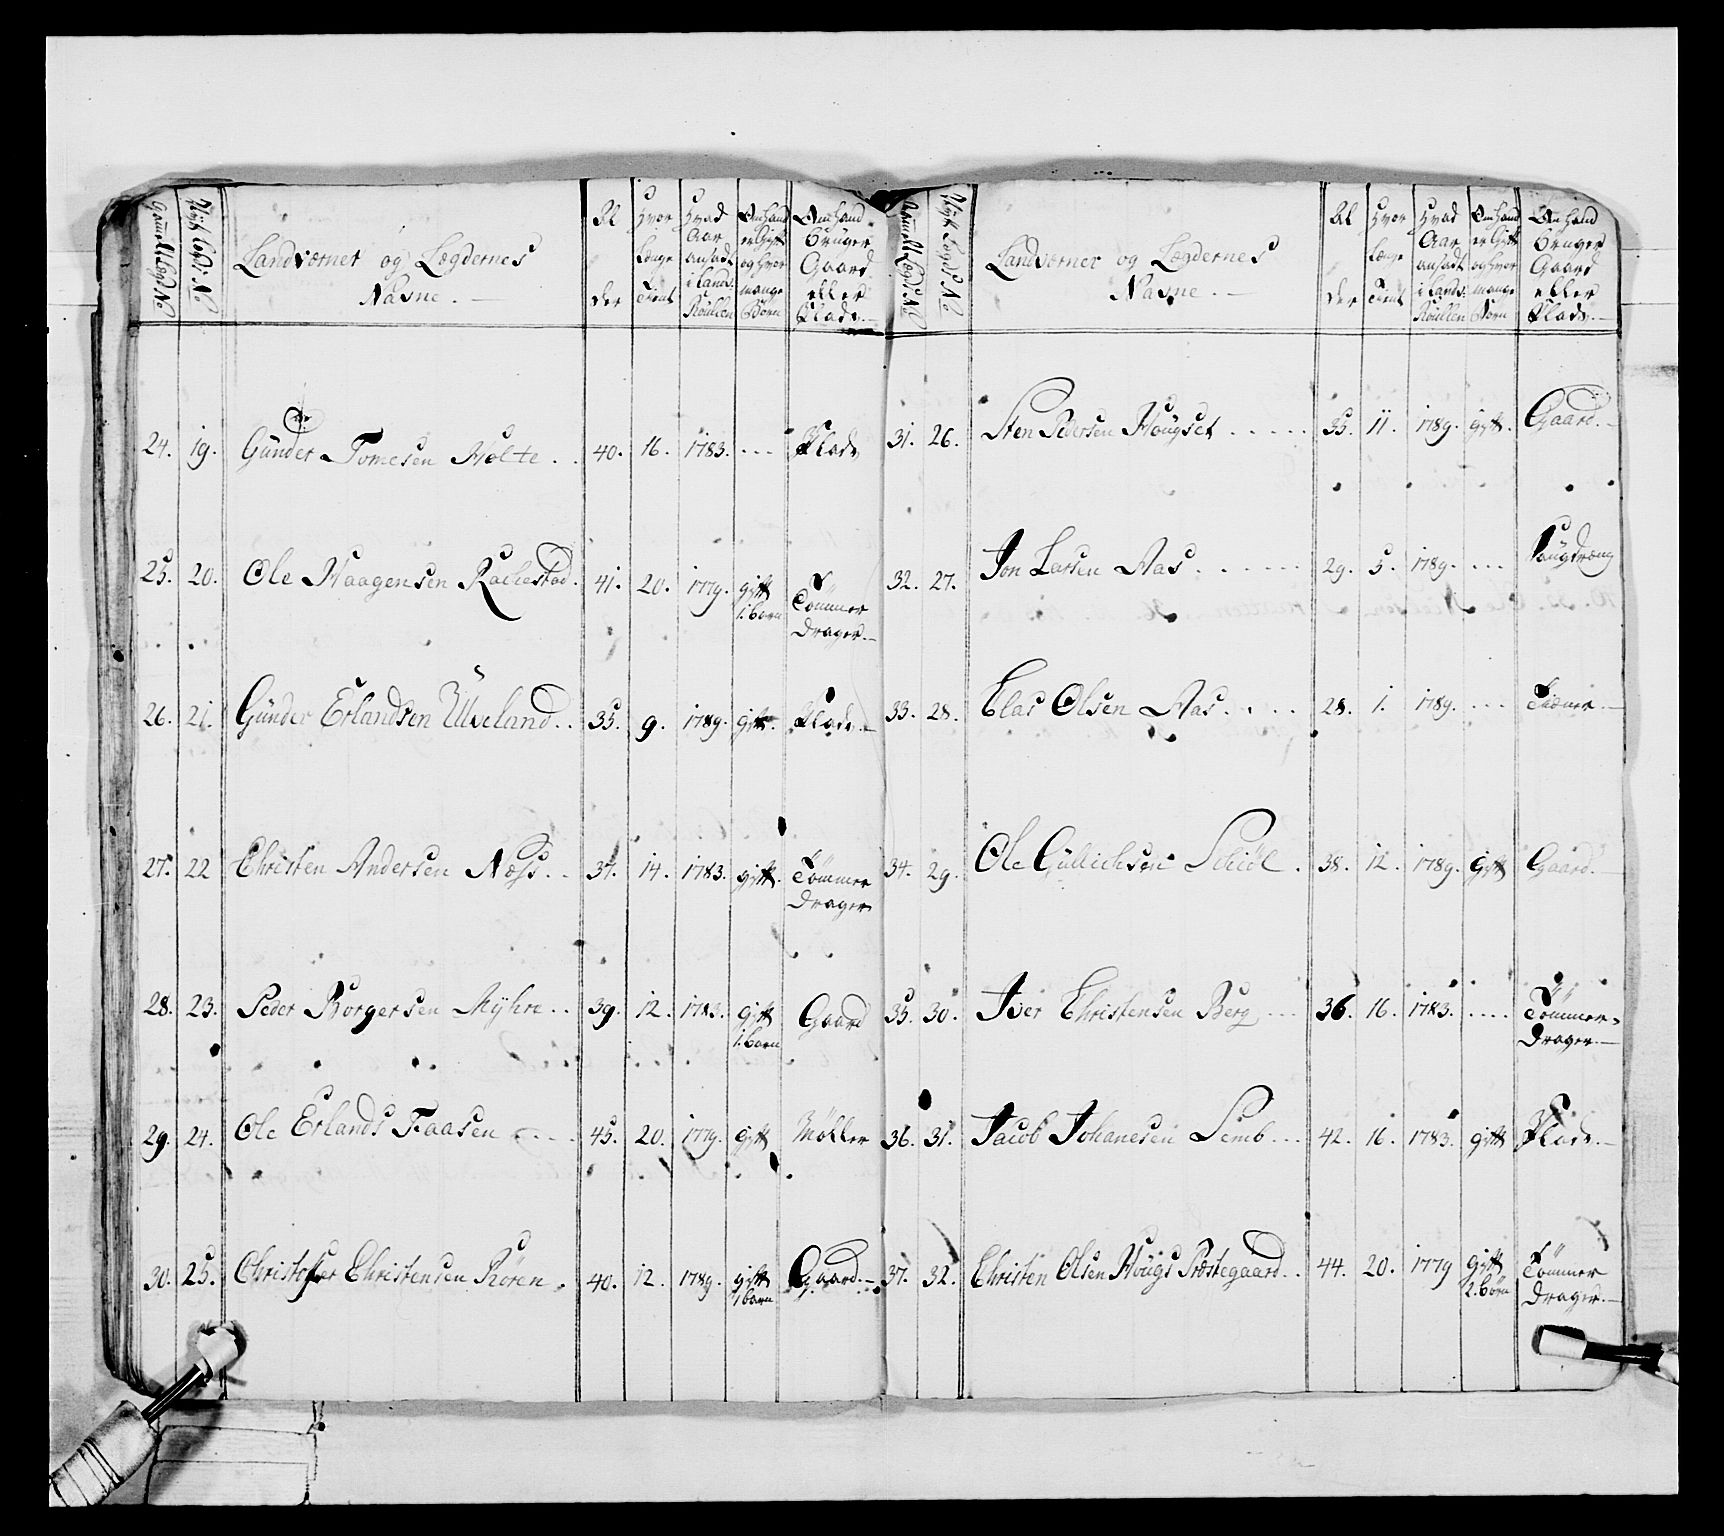 Gamelt Lægd No
Nyt Lægds No
Landværnet og Lægdernes
Navne. —
Al
der
Hvor
Længe
Tient
Hvad
Aar
ansadt
i Lands
Roullen
Om hand
er Gift
og hvor
mange
Børn
Om hand
bruger
Gaard
eller
Plads. —
24. 19. Günder Tomesen Holte . . 40. 16. 1783. . . . Plads
25. 20. Ole Haagensen Rachestad. 41. 20. 1779. gift
1. barn
Tömmer
Drager. —
26. 21. Günder Erlandsen Ulveland . . 35. 9. 1789. gift. Plads. —
27. 22 Christen Andersen Næss . . 37. 14. 1783. gift. Tömmer
Drager
28. 23. Peder Borgersen Myhre . . 39. 12. 1783. gift
1. barn
Gaard
29. 24. Ole Erlands Faasen . . . 45. 20. 1779. gift Møller
30. 25. Christoffer Christensen Rören . 40. 12. 1789. gift
1 barn
Gaard. —
Gamelt Lægd No
Nyt Lægds No
Landværnet og Lægdernes
Navne. —
Al
der
Hvor
Længe
Tient
Hvad
Aar
ansadt
i Lands
Roullen
Om hand
er Gift
og hvor
mange
Børn
Om hand
bruger
Gaard
eller
Plads. —
31. 26. Sten Pedersen Hougset . . . . . 35. 11. 1789. gift. Gaard. —
32. 27. Jon Larsen Aas . . . . . . 29. 5. 1789. . . .
33. 28. Clas Olsen Aas . . . . 28. 1. 1789. . . . Tiener. —
34. 29. Ole Gullichsen . 38. 12. 1789. gift Gaard. —
35. 30. Iver Christensen Berg . . . 36. 16. 1783. . . . . Tömmer-
Drager. —
36. 31. Jacob Johanesen Semb . . . 42. 16. 1783. gift Plads. —
37. 32. Christen Olsen Hougs Præstegaard . . 44. 20. 1779 gift
2. börn
Tömmer
Drager. —